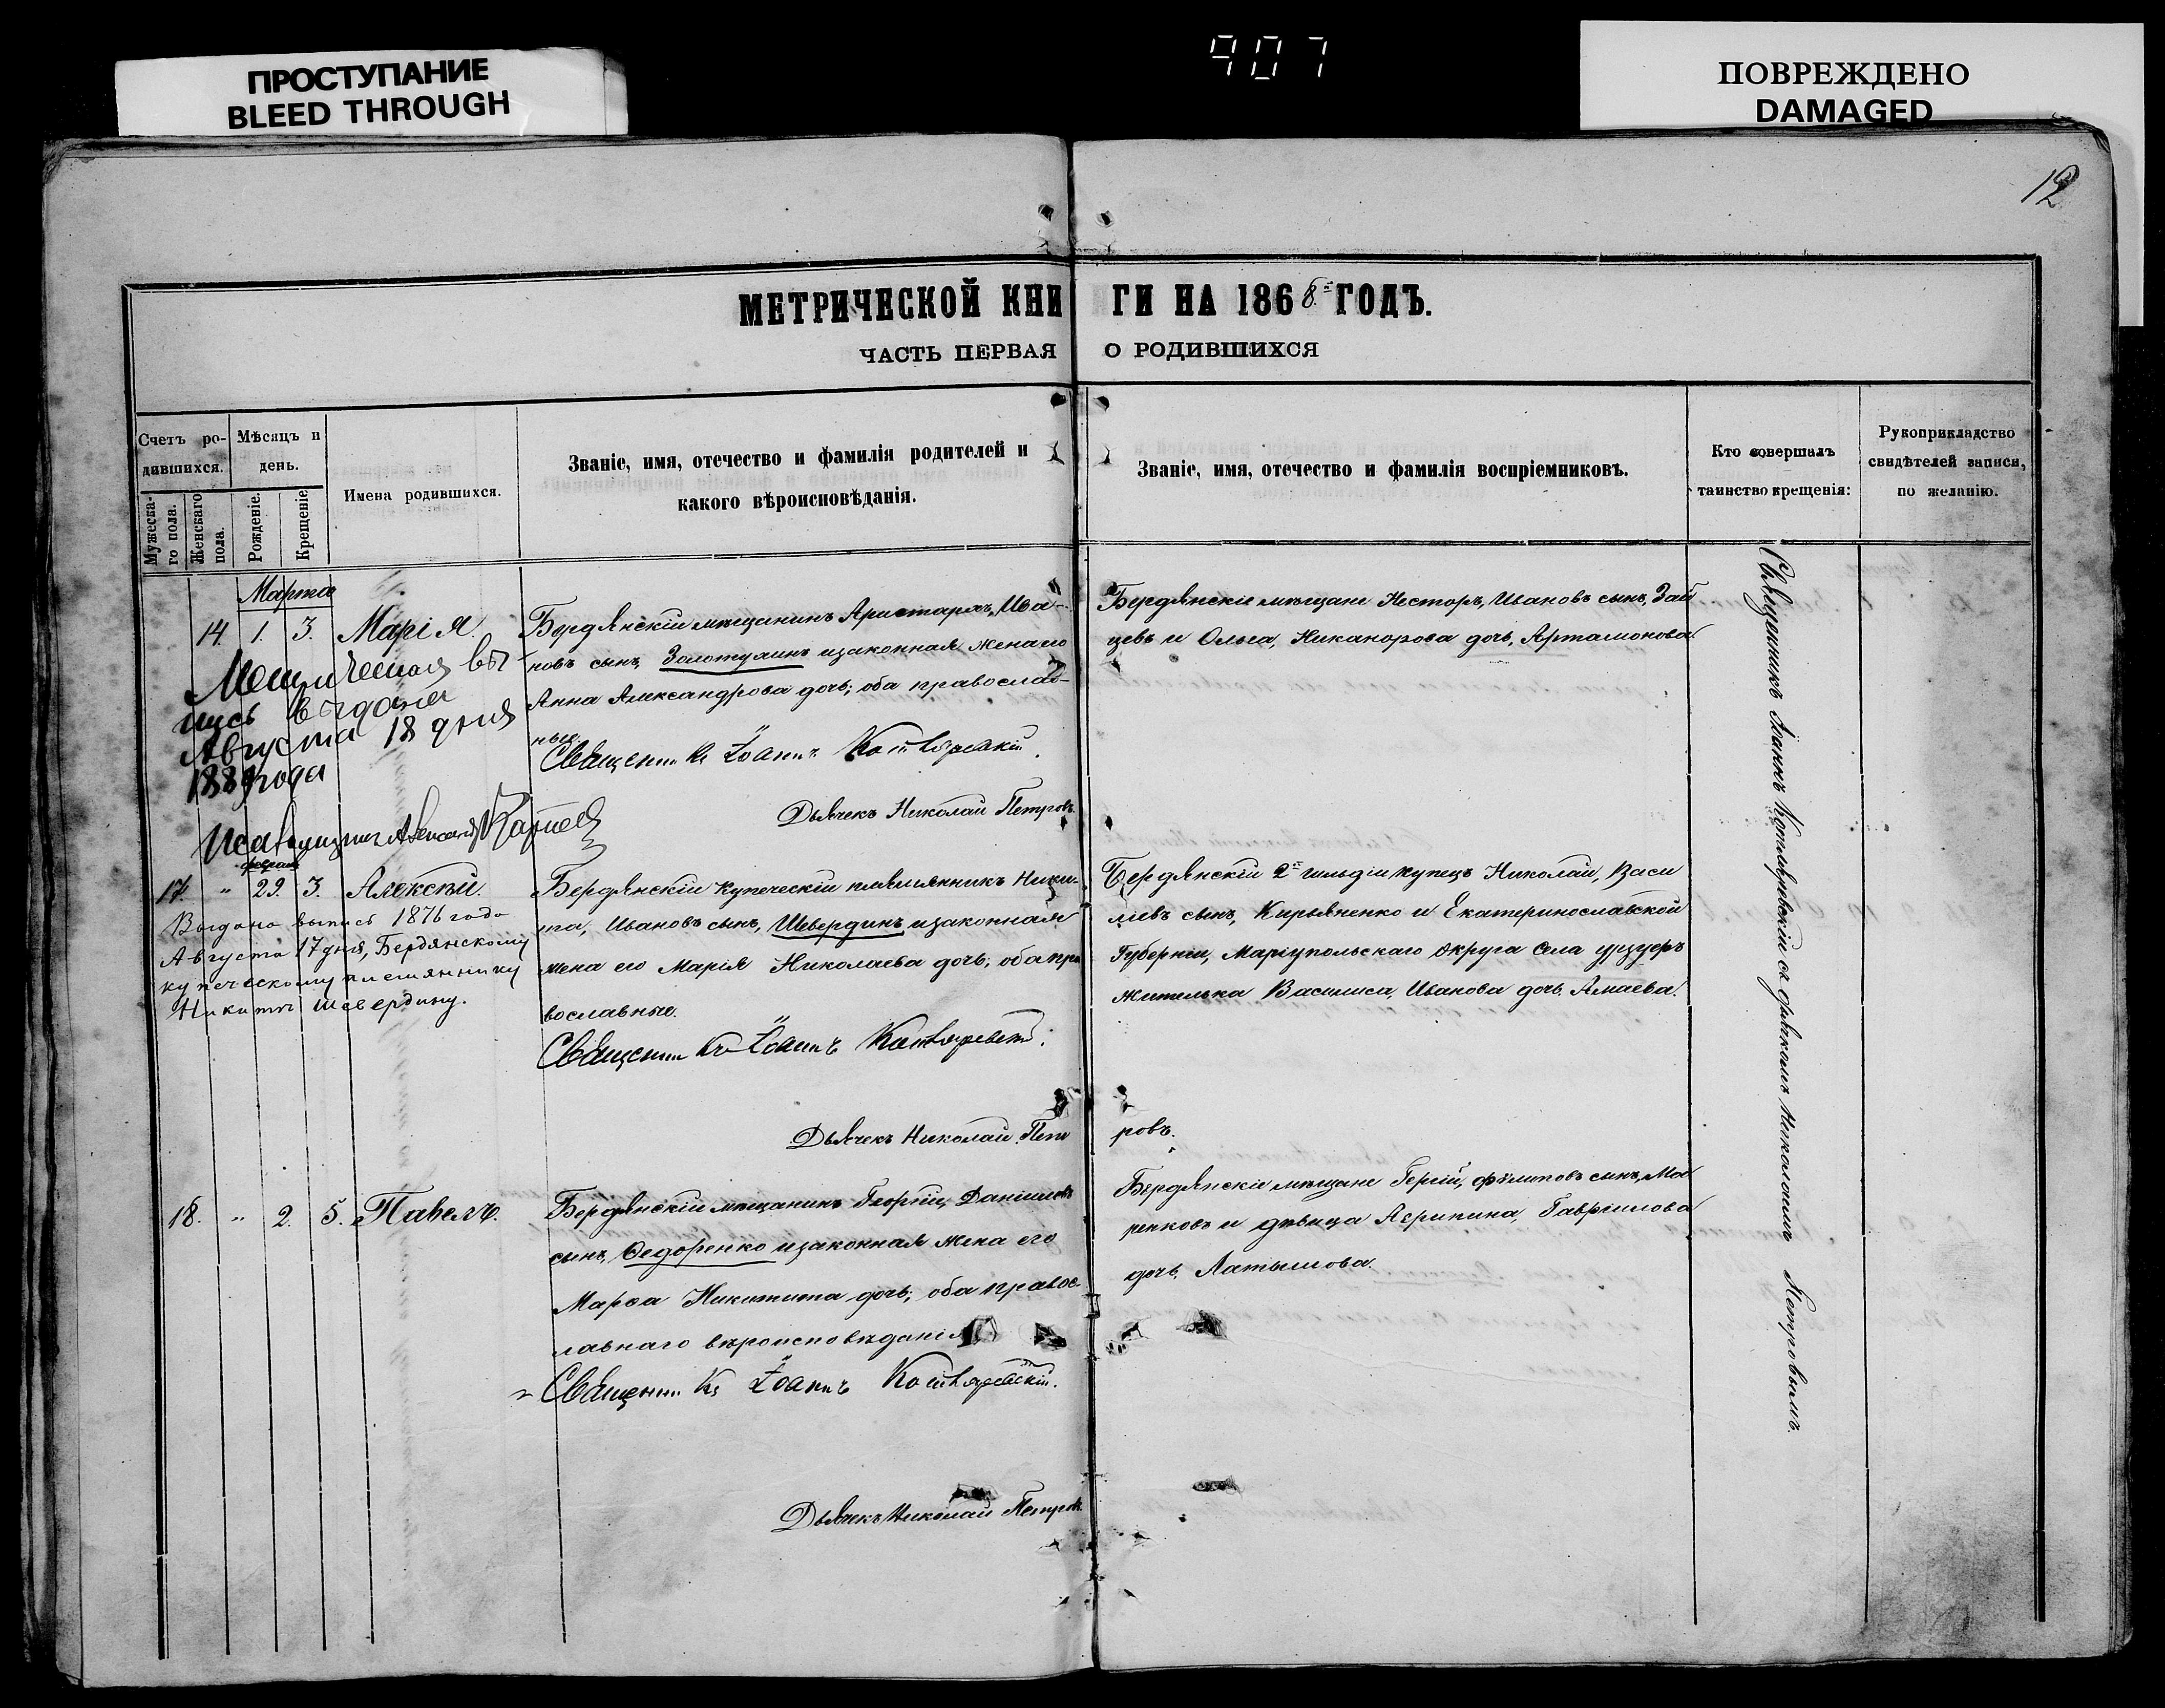 ПРОСТУПАНИЕ
BLEED THROUGH
907
ПОВРЕЖДЕНО
DAMAGED
12
МЕТРИЧЕСКОЙ КНИГИ НА 1868 ГОДЪ.
ЧАСТЬ ПЕРВАЯ О РОДИВШИХСЯ
Счетъ ро-
дившихся.
Мужеска-
го пола.
Женскаго
пола.
Мѣсяцъ и
день.
Рожденіе.
Крещеніе
Имена родившихся.
Званіе, имя, отечество и фамилія родителей и
какого вѣроисповѣданія.
Званіе, имя, отечество и фамилія воспріемниковъ.
Кто совершалъ
таинство крещенія:
Рукоприкладство
свидѣтелей записи,
по желанію.
Марта
14. 1. 3. Марія.
Бердянскій мѣщанинъ Аристархъ, Ива-
новъ сынъ, Золотухинъ изаконная жена его
Анна Александрова дочь; оба православ-
ные.
Священникъ Іоаннъ Котляревскій.
Дьячекъ Николай Петровъ
Бердянскіе мѣщане Несторъ, Ивановъ сынъ, Зай
цевъ и Ольга, Никанорова дочь, Артамонова.
Метрическая вы-
пись выдана
Августа 18 дня
1889 года
Февраля
17. " 29. 3. Алексѣй.
Выдана выпись 1876 года
Августа 17 дня, Бердянскому
купеческому племяннику
Никитѣ Шевердину.
Бердянскій купеческій племянникъ Ники-
та, Ивановъ сынъ, Шевердинъ изаконная
жена его Марія Николаева дочь; оба пра
вославные.
Священникъ Іоаннъ Котляревскій.
Дьячекъ Николай Петровъ.
Бердянскій 2й гильдіи купецъ Николай, Васи
ліевъ сынъ, Кирьяненко и Екатеринославской
Губерніи, Маріупольскаго округа села Урзуфъ
жителька Василиса, Иванова дочь
18. " 2. 5. Павелъ.
Бердянскій мѣщанинъ Георгій, Даніиловъ
сынъ, Ѳедоренко изаконная жена его
Марѳа Никитина дочь; оба правос-
лавнаго вѣроисповѣданія
Священникъ Іоаннъ Котляревскій.
Дьячекъ Николай Петровъ.
Бердянскіе мѣщане сынъ,
и дѣвица Агрипина, Гавріилова
дочь, Латышова.
Священникъ Іоаннъ Котляревскій съ дьячкомъ Николаемъ Петровымъ.